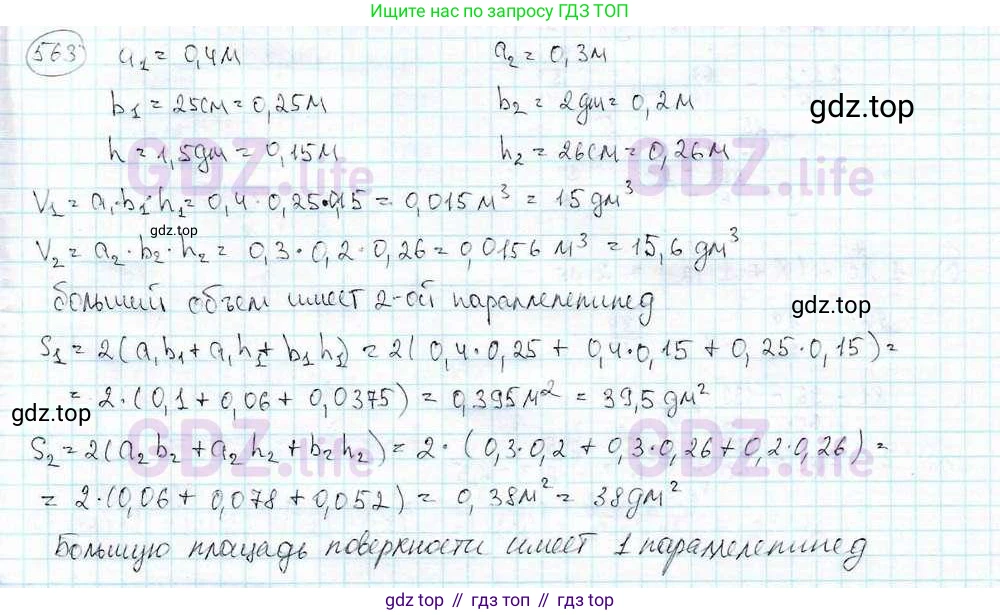 Ищите по запросу ГДЗ ТОП
563 a₁ = 0,4м a₂ = 0,3м
b₁ = 25см = 0,25м b₂ = 2дм = 0,2м
gdz.top
h = 1,5дм = 0,15м h₂ = 26см = 0,26м
GDZ.life GDZ.life
V₁ = a₁·b₁·h₁ = 0,4·0,25·0,15 = 0,015 м³ = 15 дм³
gdz.top
V₂ = a₂·b₂·h₂ = 0,3·0,2·0,26 = 0,0156 м³ = 15,6 дм³
больший объем имеет 2-ой параллелепипед
gdz.top
S₁ = 2(a₁b₁ + a₁h₁ + b₁h₁) = 2(0,4·0,25 + 0,4·0,15 + 0,25·0,15) =
= 2·(0,1 + 0,06 + 0,0375) = 0,395м² = 39,5 дм²
gdz.top
GDZ.life GDZ.life
S₂ = 2(a₂b₂ + a₂h₂ + b₂h₂) = 2·(0,3·0,2 + 0,3·0,26 + 0,2·0,26) =
= 2·(0,06 + 0,078 + 0,052) = 0,38м² = 38дм²
Большую площадь поверхности имеет 1 параллелепипед
gdz.top // гдз.топ // gdz.top